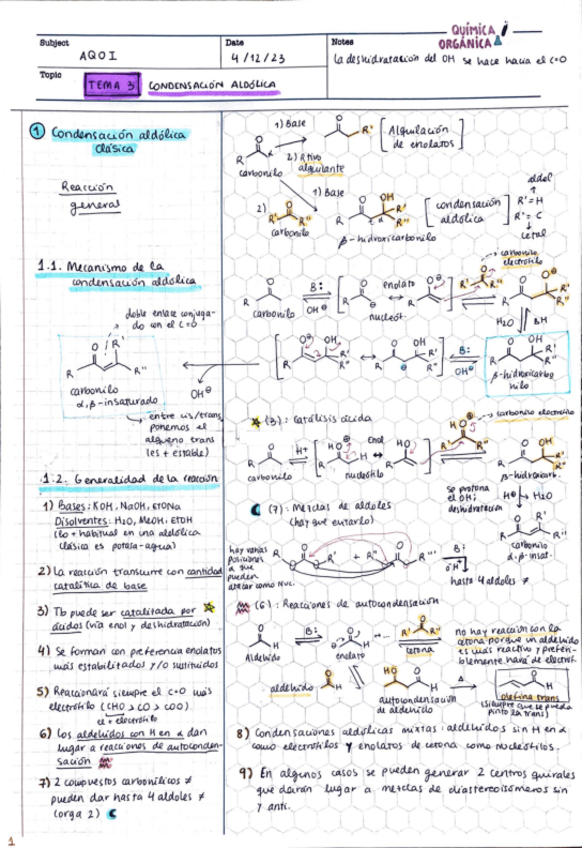 QUÍMICA
ORGÁNICA
Subject
AQOI
Date
4/12/23
Notes
La deshidratación del OH se hace hacia el C=O
Topic
TEMA 3
CONDENSACIÓN ALDÓLICA
1 Condensación aldólica
clásica
Reacción
general
1) Base
2) Rtivo
alquilante
carbonilo
[Alquilación
de enolatos]
1) Base
2)
carbonilo
β-hidroxicarbonilo
[condensación
aldólica]
aldol
R'=H
R'=C
cetal
1.1. Mecanismo de la
condensación aldólica
carbonilo
electrófilo
B:
OH⊖
enolato
carbonilo
nucleóf.
H2O
BH
doble enlace conjuga-
do con el C=O
carbonilo
α,β-insaturado
OH⊖
B:
OH⊖
β-hidroxicarbo
nilo
entre cis/trans
ponemos el
alqueno trans
(es + estable)
(3): Catálisis ácida
carbonilo electrófilo
H+
Enol
carbonilo
nucleófilo
β-hidroxicarb.
se protona
el OH;
deshidratación
H⊕
H2O
carbonilo
α,β-insat.
1.2. Generalidad de la reacción
1) Bases: KOH, NaOH, EtONa
Disolventes: H2O, MeOH, EtOH
(lo + habitual en una aldólica
clásica es potasa-agua)
2) La reacción transcurre con cantidad
catalítica de base
3) Tb puede ser catalizada por
ácidos (vía enol y deshidratación)
4) Se forman con preferencia enolatos
más estabilizados y/o sustituidos
5) Reaccionará siempre el C=O más
electrófilo (CHO > CO > COO)
el + electrófilo
6) Los aldehídos con H en α dan
lugar a reacciones de autoconden-
sación
7) 2 compuestos carbonílicos ≠
pueden dar hasta 4 aldoles ≠
(orga 2)
(7): Mezclas de aldoles
(hay que evitarlo)
hay varias
posiciones
α que
pueden
atacar como Nuc.
B:
OH
hasta 4 aldoles ≠
(6): Reacciones de autocondensación
Aldehído
B:
enolato
cetona
no hay reacción con la
cetona porque un aldehído
es más reactivo y preferi-
blemente hará de electróf.
aldehído
autocondensación
de aldehído
Δ
olefina trans
(siempre que se pueda
pinto la trans)
8) Condensaciones aldólicas mixtas: aldehídos sin H en α
como electrófilos y enolatos de cetona como nucleófilos.
9) En algunos casos se pueden generar 2 centros quirales
que darán lugar a mezclas de diastereoisómeros sin
y anti.
1